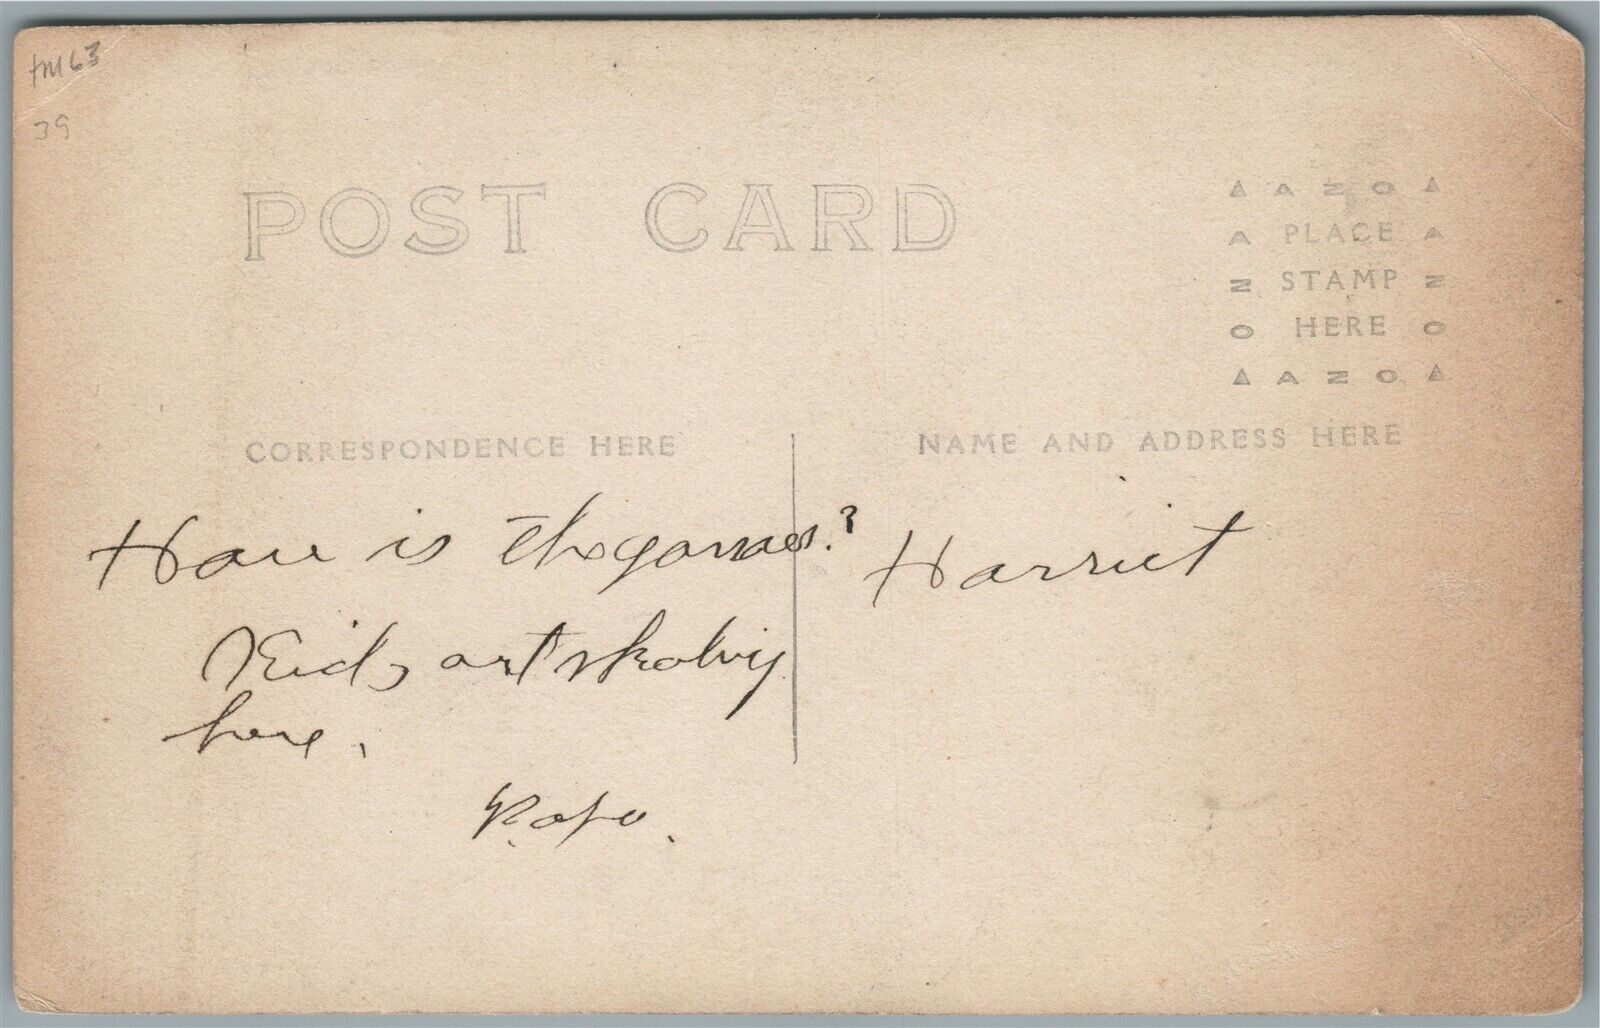 39
POST CARD
▲ A Z O ▲
A PLACE A
N STAMP N
O HERE O
▲ A Z O ▲
CORRESPONDENCE HERE
NAME AND ADDRESS HERE
How is the games?
Kids, art
here.
Harriet